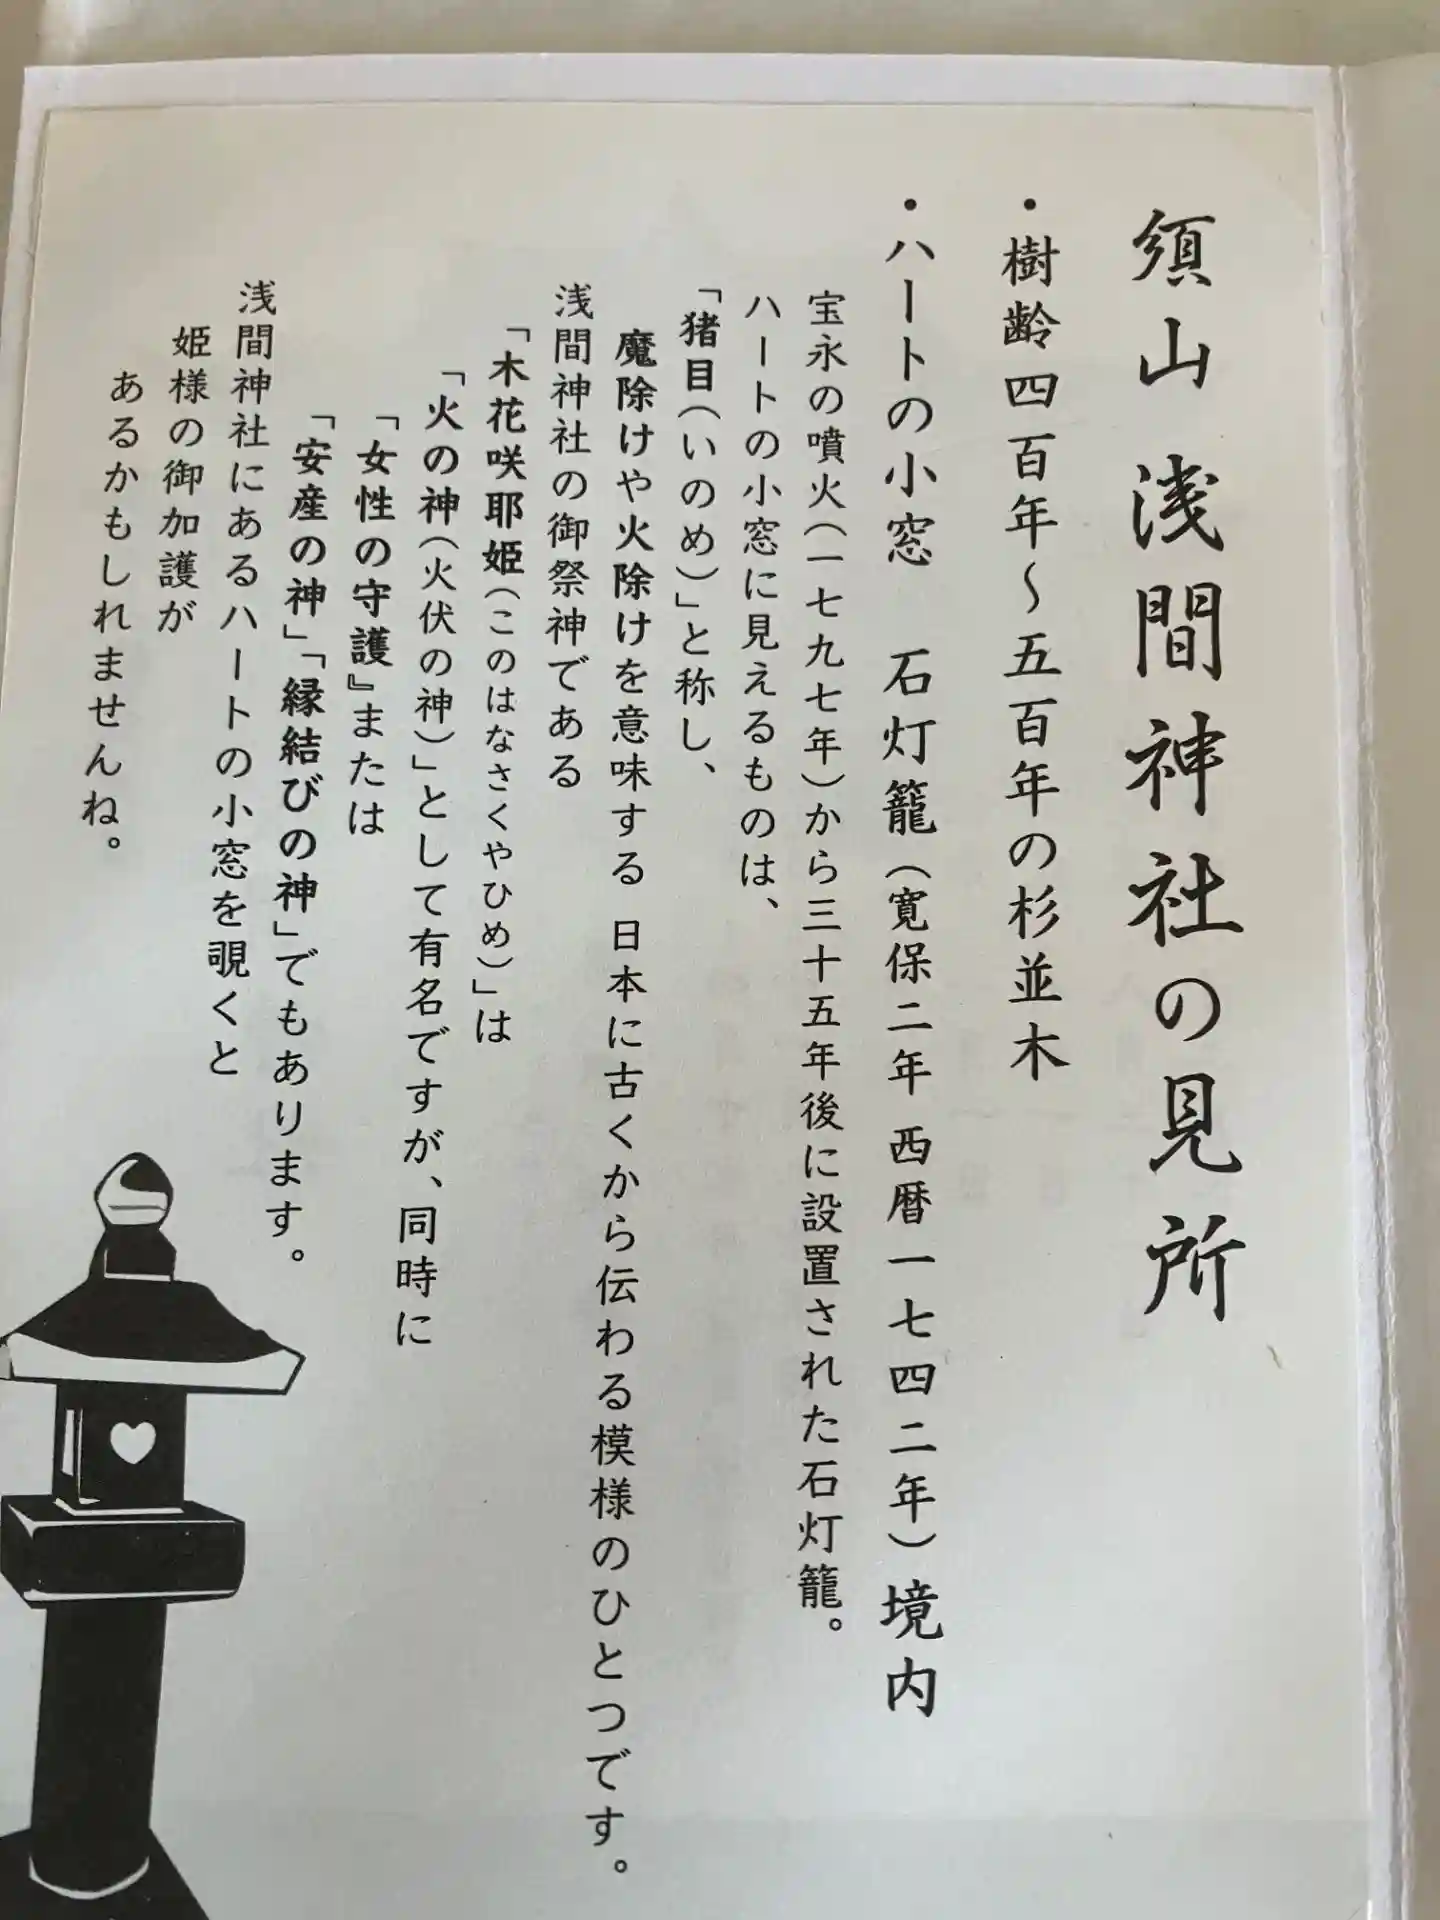 須山浅間神社の見所
・樹齢四百年～五百年の杉並木
・ハートの小窓　石灯籠（寛保二年 西暦一七四二年）境内
宝永の噴火（一七九七年）から三十五年後に設置された石灯籠。
ハートの小窓に見えるものは、
「猪目（いのめ）」と称し、
魔除けや火除けを意味する 日本に古くから伝わる模様のひとつです。
浅間神社の御祭神である
「木花咲耶姫（このはなさくやひめ）」は
「火の神（火伏の神）」として有名ですが、同時に
「女性の守護』または
「安産の神」「縁結びの神」でもあります。
浅間神社にあるハートの小窓を覗くと
姫様の御加護が
あるかもしれませんね。